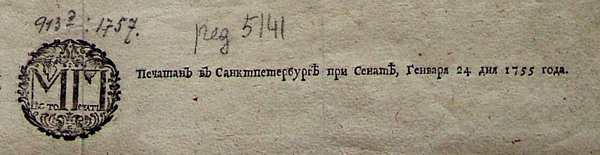 913²: 1757.
ред 5141
МП
МѢСТО ПЕЧАТИ
Печатанъ въ Санктпетербургѣ при Сенатѣ, Генваря 24 дня 1755 года.